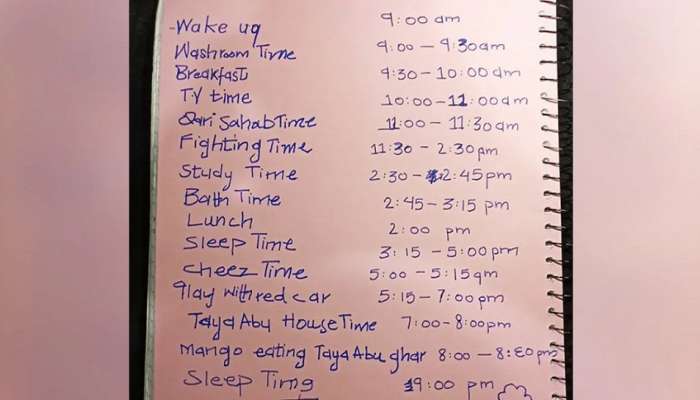 Wake up 9:00 am
Washroom Time 9:00 – 9:30am
Breakfast 9:30 – 10:00 am
T.V time 10:00 – 11:00am
Qari Sahab Time 11:00 – 11:30am
Fighting Time 11:30 – 2:30pm
Study Time 2:30 – 2:45pm
Bath Time 2:45 – 3:15 pm
Lunch 2:00 pm
Sleep Time 3:15 – 5:00pm
Cheez Time 5:00 – 5:15am
Play with red car 5:15 – 7:00pm
Taya Abu House Time 7:00 – 8:00pm
Mango eating Taya Abu ghar 8:00 – 8:30pm
Sleep Time 9:00 pm